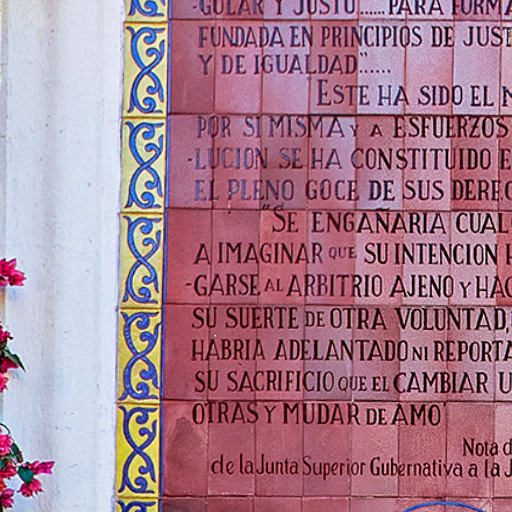 -GULAR Y JUSTO......PARA FORMA
FUNDADA EN PRINCIPIOS DE JUST
Y DE IGUALDAD"......
ESTE HA SIDO EL
POR SI MISMA Y A ESFUERZOS
-LUCION SE HA CONSTITUIDO E
EL PLENO GOCE DE SUS DEREC
"SE ENGAÑARIA CUAL
A IMAGINAR QUE SU INTENCION
-GARSE AL ARBITRIO AJENO Y HAC
SU SUERTE DE OTRA VOLUNTAD,
HABRIA ADELANTADO NI REPORTA
SU SACRIFICIO QUE EL CAMBIAR U
OTRAS Y MUDAR DE AMO"
Nota d
de la Junta Superior Gubernativa a la J